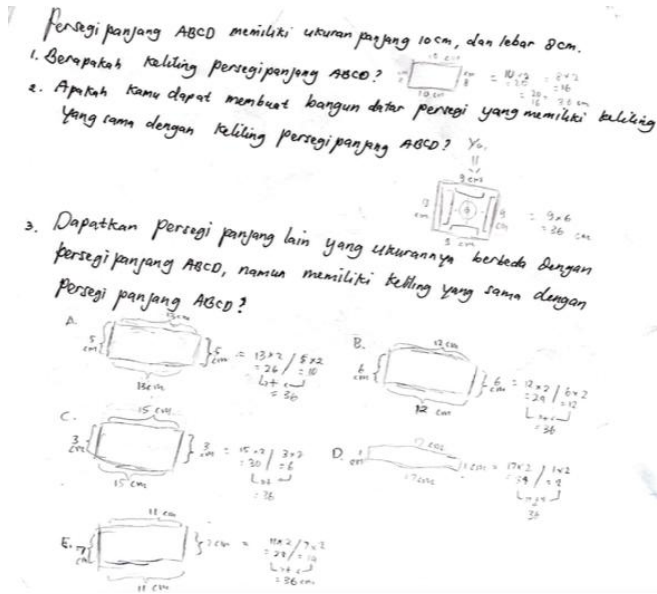 Persegi panjang ABCD memiliki ukuran panjang 10 cm, dan lebar 8 cm.
1. Berapakah keliling persegi panjang ABCD?
10 cm 8 = 10 x 2 = 8 x 2
= 20 = 16
= 20 + 16 = 36 cm
2. Apakah kamu dapat membuat bangun datar persegi yang memiliki keliling
yang sama dengan keliling persegi panjang ABCD? Ya,
9 cm
9 cm 9 cm = 9 x
= 36 cm
9 cm
3. Dapatkan persegi panjang lain yang ukurannya berbeda dengan
persegi panjang ABCD, namun memiliki keliling yang sama dengan
persegi panjang ABCD?
A. 13 cm
5 cm 5 cm = 13 x 2 / 5 x 2
= 26 / = 10
+
= 36
13 cm
B. 12 cm
6 cm 6 cm = 12 x 2 / 6 x 2
= 24 = 12
+
= 36
12 cm
C. 15 cm
3 cm 3 cm = 15 x 2 / 3 x 2
= 30 = 6
+
= 36
15 cm
D. 17 cm
1 cm 1 cm = 17 x 2 / 1 x 2
= 34 = 2
+
36
17 cm
E. 11 cm
7 cm 7 cm = 11 x 2 / 7 x 2
= 22 / = 14
+
= 36 cm
11 cm